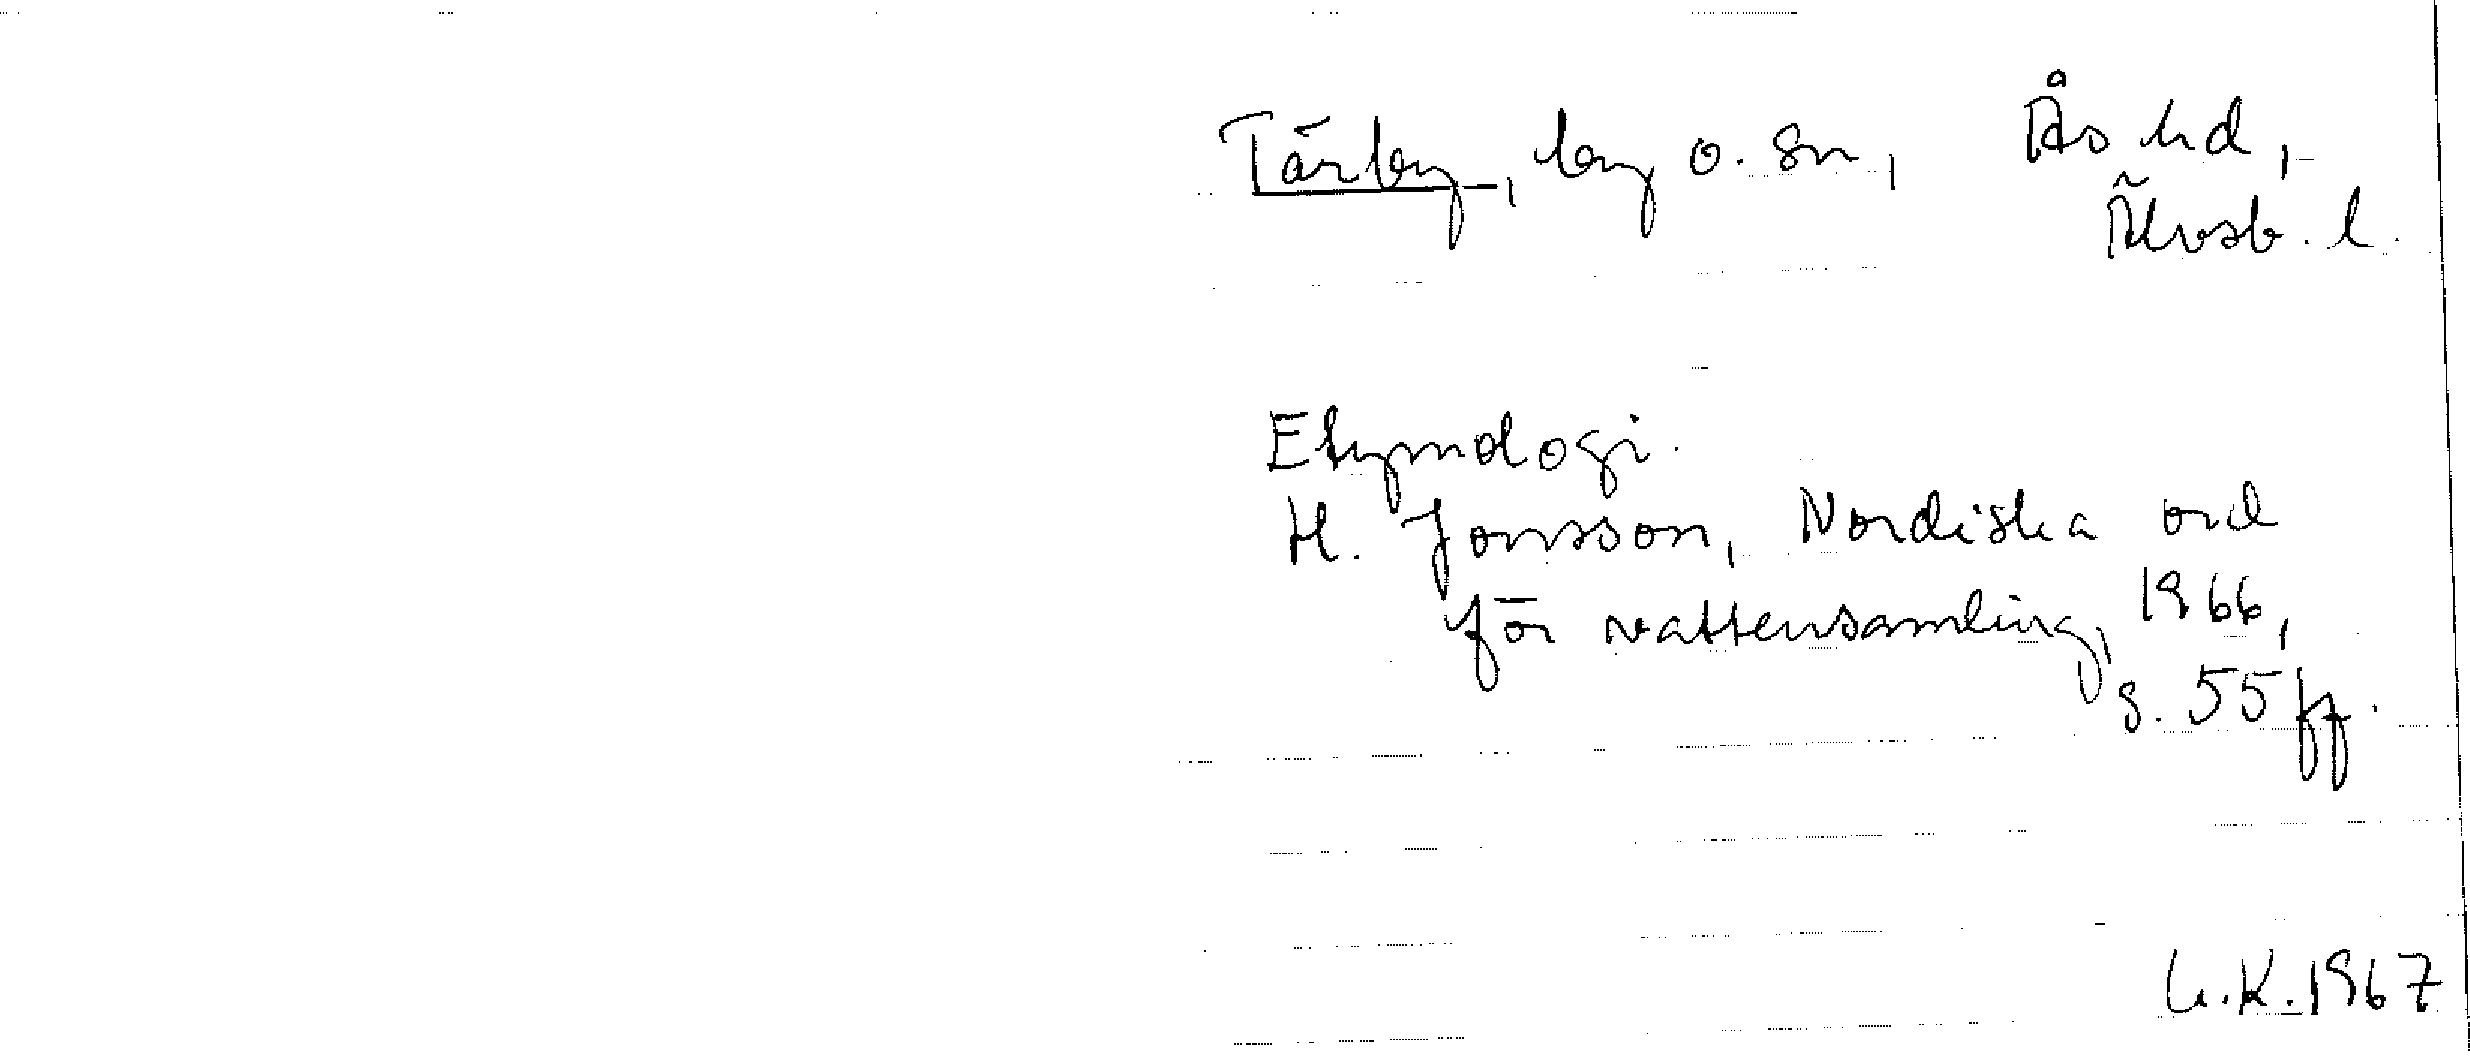 Tärby, by o. sn, Ås hd,
Älvsb. l.
Etymologi.
H. Jonsson, Nordiska ord
för vattensamling, 1966,
s. 55 ff.
G.K. 1967